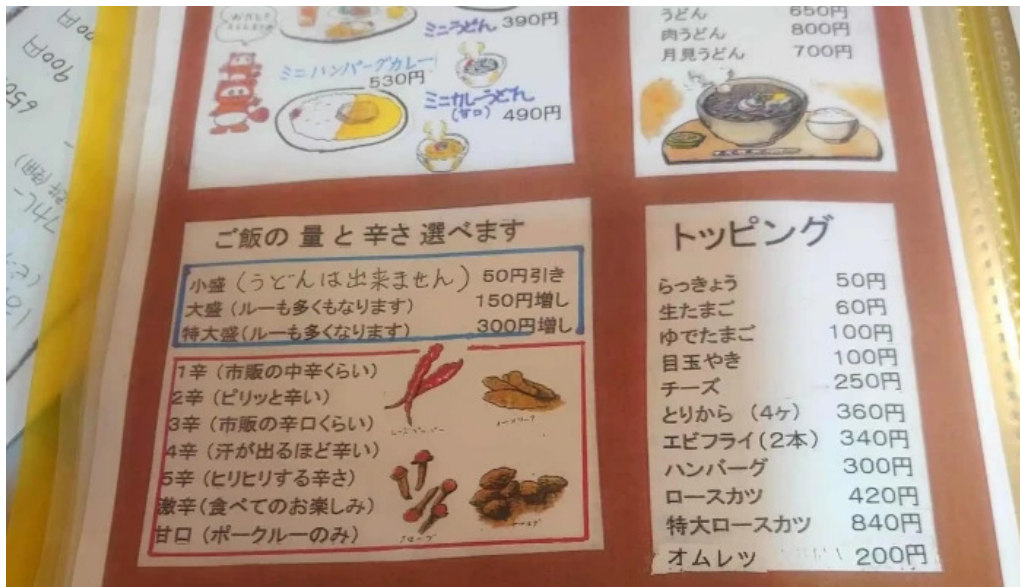 ミニうどん 390円
ミニハンバーグカレー
530円
ミニカレーうどん
(甘口) 490円
うどん 650円
肉うどん 800円
月見うどん 700円
ご飯の 量 と 辛さ 選べます
小盛 (うどんは出来ません) 50円引き
大盛 (ルーも多くもなります) 150円増し
特大盛(ルーも多くなります) 300円増し
1辛 (市販の中辛くらい)
2辛 (ピリッと辛い)
3辛 (市販の辛口くらい)
4辛 (汗が出るほど辛い)
5辛 (ヒリヒリする辛さ)
激辛(食べてのお楽しみ)
甘口 (ポークルーのみ)
トッピング
らっきょう 50円
生たまご 60円
ゆでたまご 100円
目玉やき 100円
チーズ 250円
とりから (4ヶ) 360円
エビフライ(2本) 340円
ハンバーグ 300円
ロースカツ 420円
特大ロースカツ 840円
オムレツ 200円
900円
650